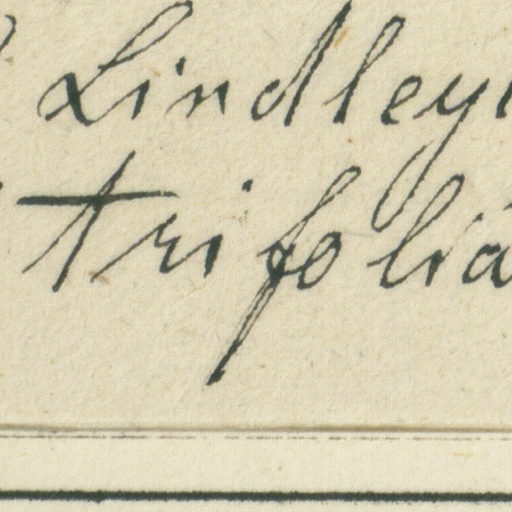 Lindley
trifolia